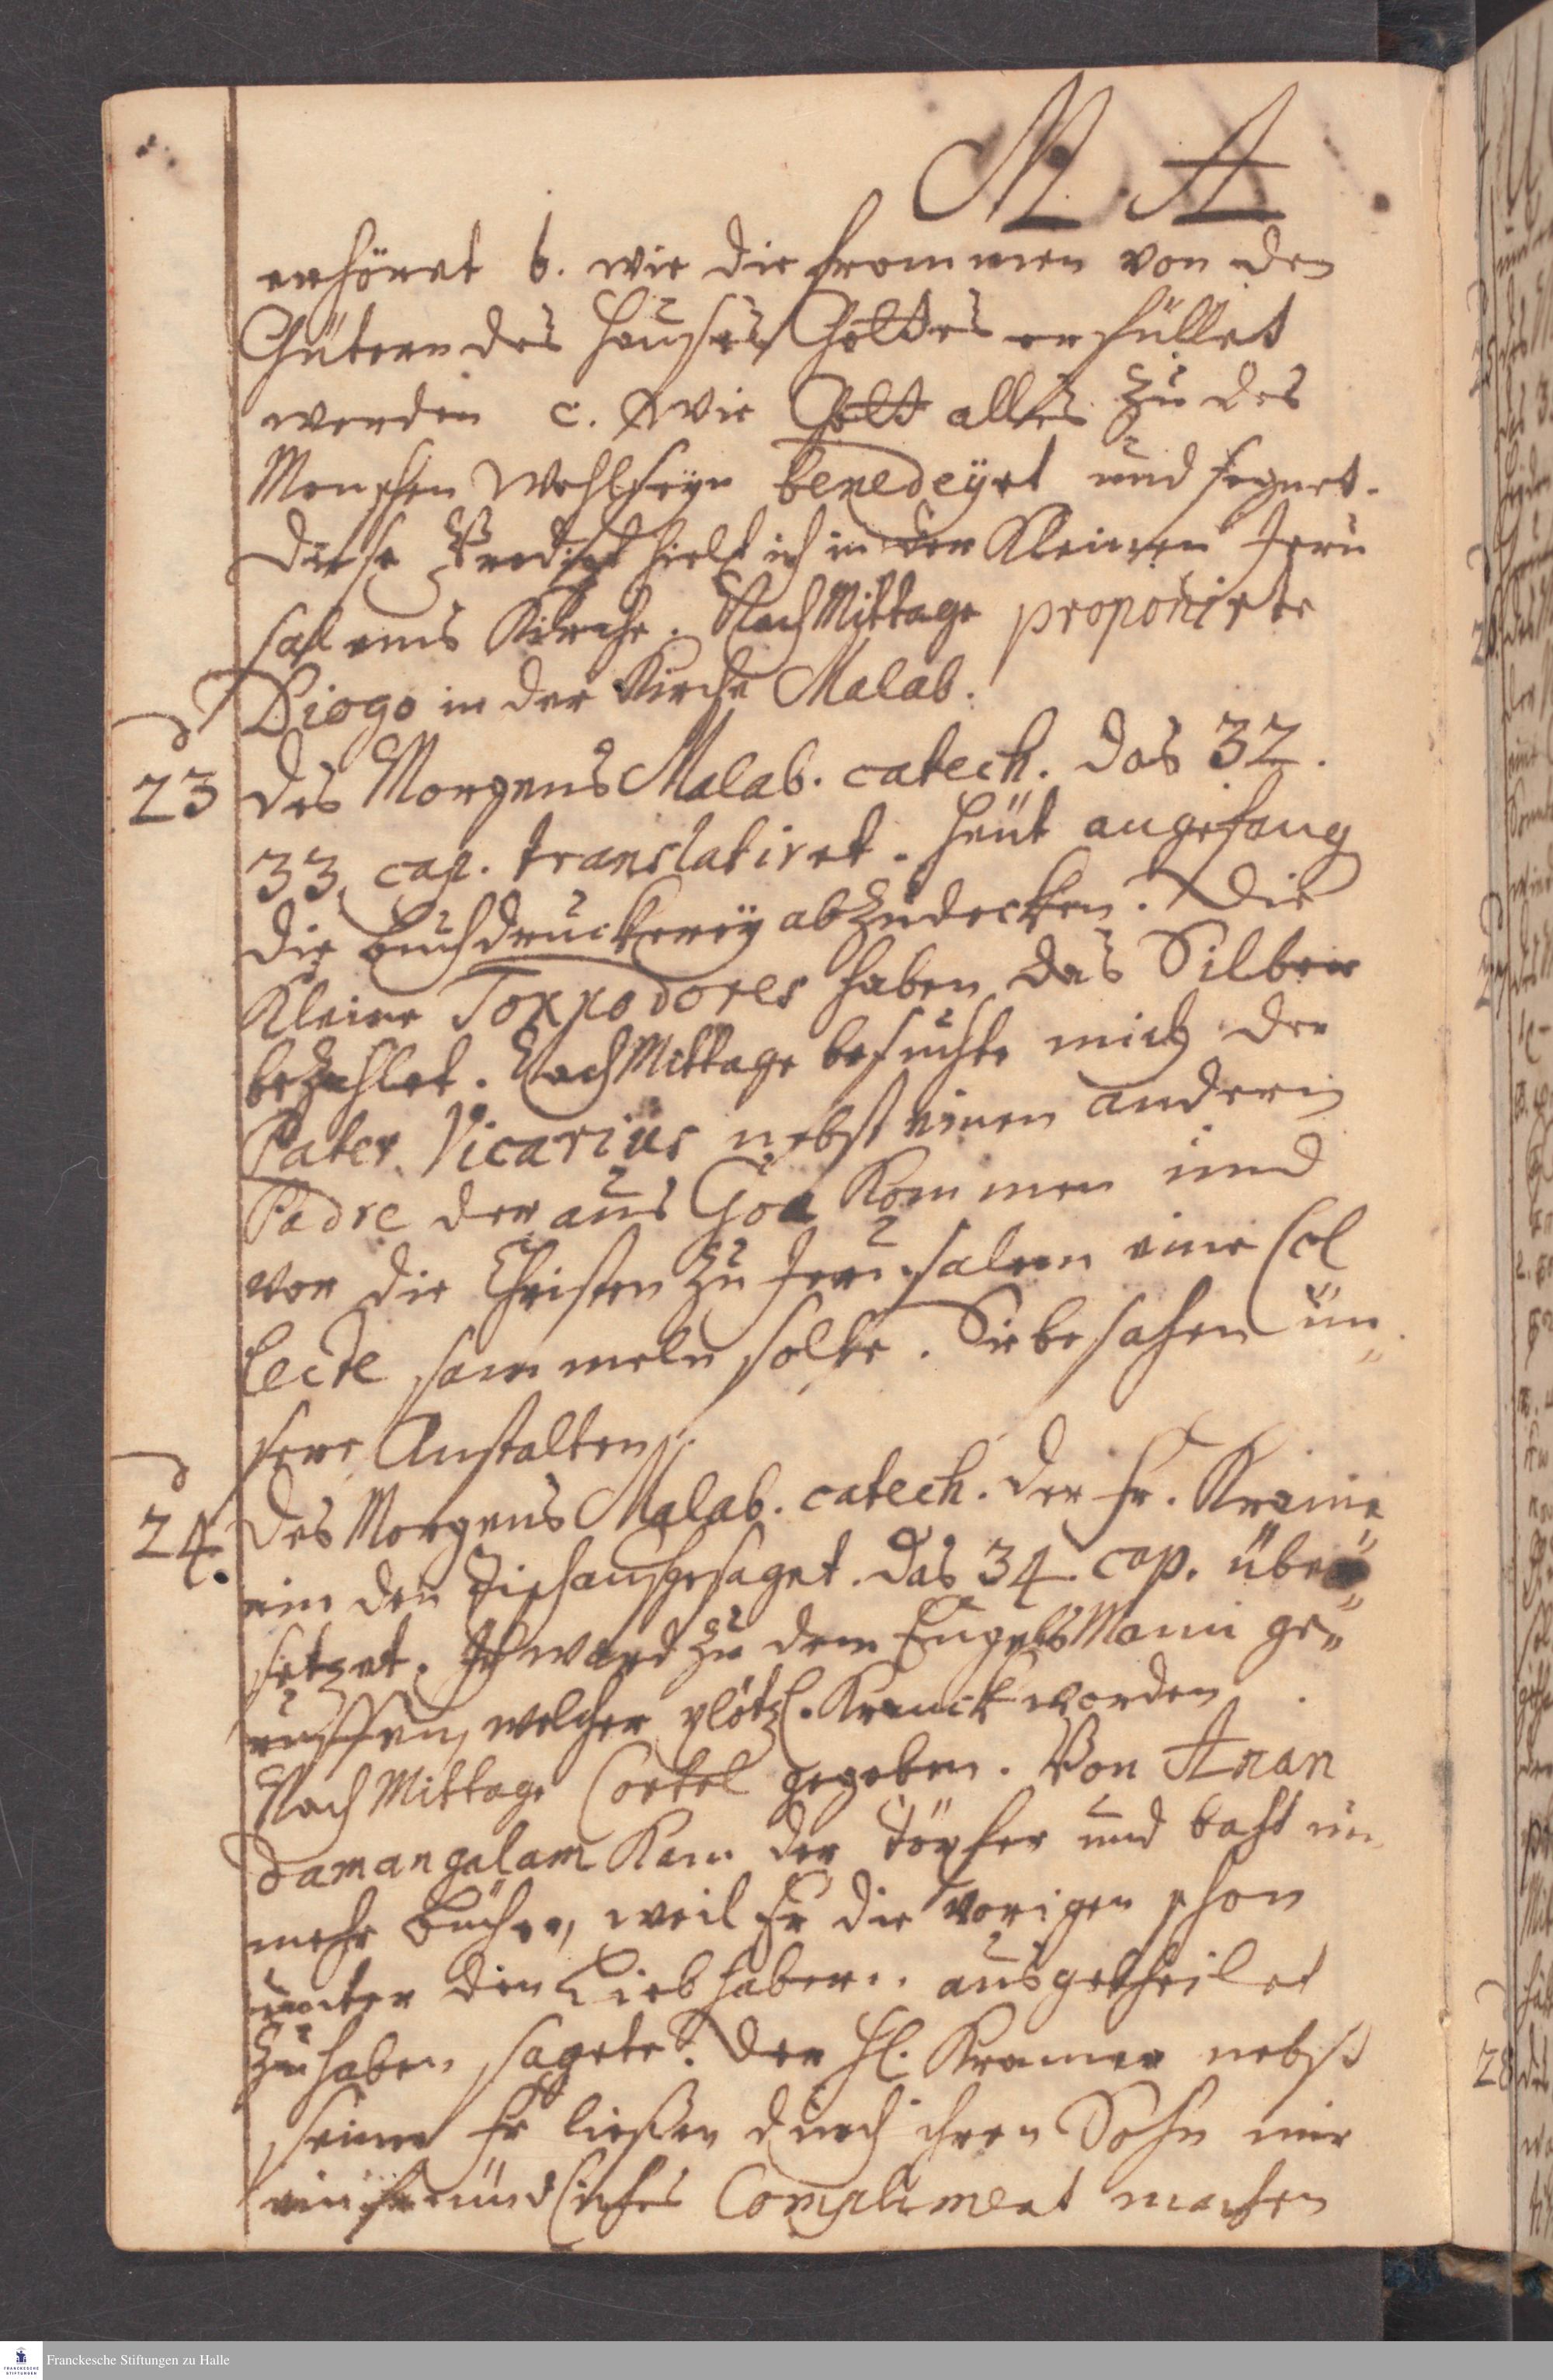 M. A
erhöret b. wie die frommen von den
Gütern des Hauses Gottes erfüllet
werden c. Wie Gott alles zu des
Menschen Wohlseyn benedeÿet und segnet.
Diese Predigt hielt ich in der Kleinen Jeru
salems Kirche. NachMittage proponirte
Diogo in der Kirche Malab.
23 Des Morgens Malab. catech. das 32.
33. cap. translatiret. Heüt angefang
die Buchdruckereÿ abzudecken. Die
Kleine Toppodores haben das Silber
bezahlet. NachMittage besuchte mich der
Pater Vicarius nebst einen andern
Padre der aus Goa kommen und
vor die Christen zu Jerusalem eine Col
lecte sammeln solte. Sie besahen un„
sere Anstalten.
24. Des Morgens Malab. catech. der Fr.
ein den Tisch aufgesaget. Das 34. cap. über„
setzet. Ich ward zu dem EngelsMann ge„
ruffen, welcher plötzl. kranck worden.
NachMittage gegeben. Von Anan
damangalam kam der Töpfer und baht um
mehr Bücher, weil Er die vorigen schon
unter den Liebhabern ausgetheilet
zu haben sagete. Der H. Kramer nebst
seiner Fr ließen durch ihren Sohn mir
ein mündliches Compliment machen
Franckesche Stiftungen zu Halle
FRANCKESCHE STIFTUNGEN